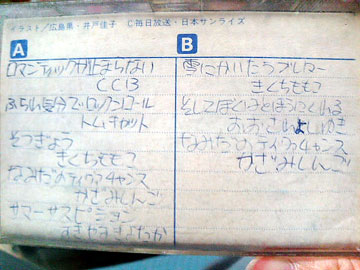 イラスト/広島県・井戸佳子 Ⓒ毎日放送・日本サンライズ
A
ロマンティックが止まらない
CCB
ふられ気分でロックンロール
トムキャット
そつぎょう
きくちももこ
なみだのティクアチャンス
かざみしんご
サマーサスピション
すぎやまきよたか
B
雪にかいたラブレター
きくちももこ
そしてぼくはとほうにくれる
おおさわよしゆき
なみだのティクアチャンス
かざみしんご